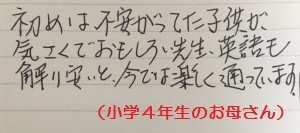 初めは不安がってた子供が
気さくでおもしろい先生、英語も
解り安いと、今では楽しく通っています!
(小学4年生のお母さん)